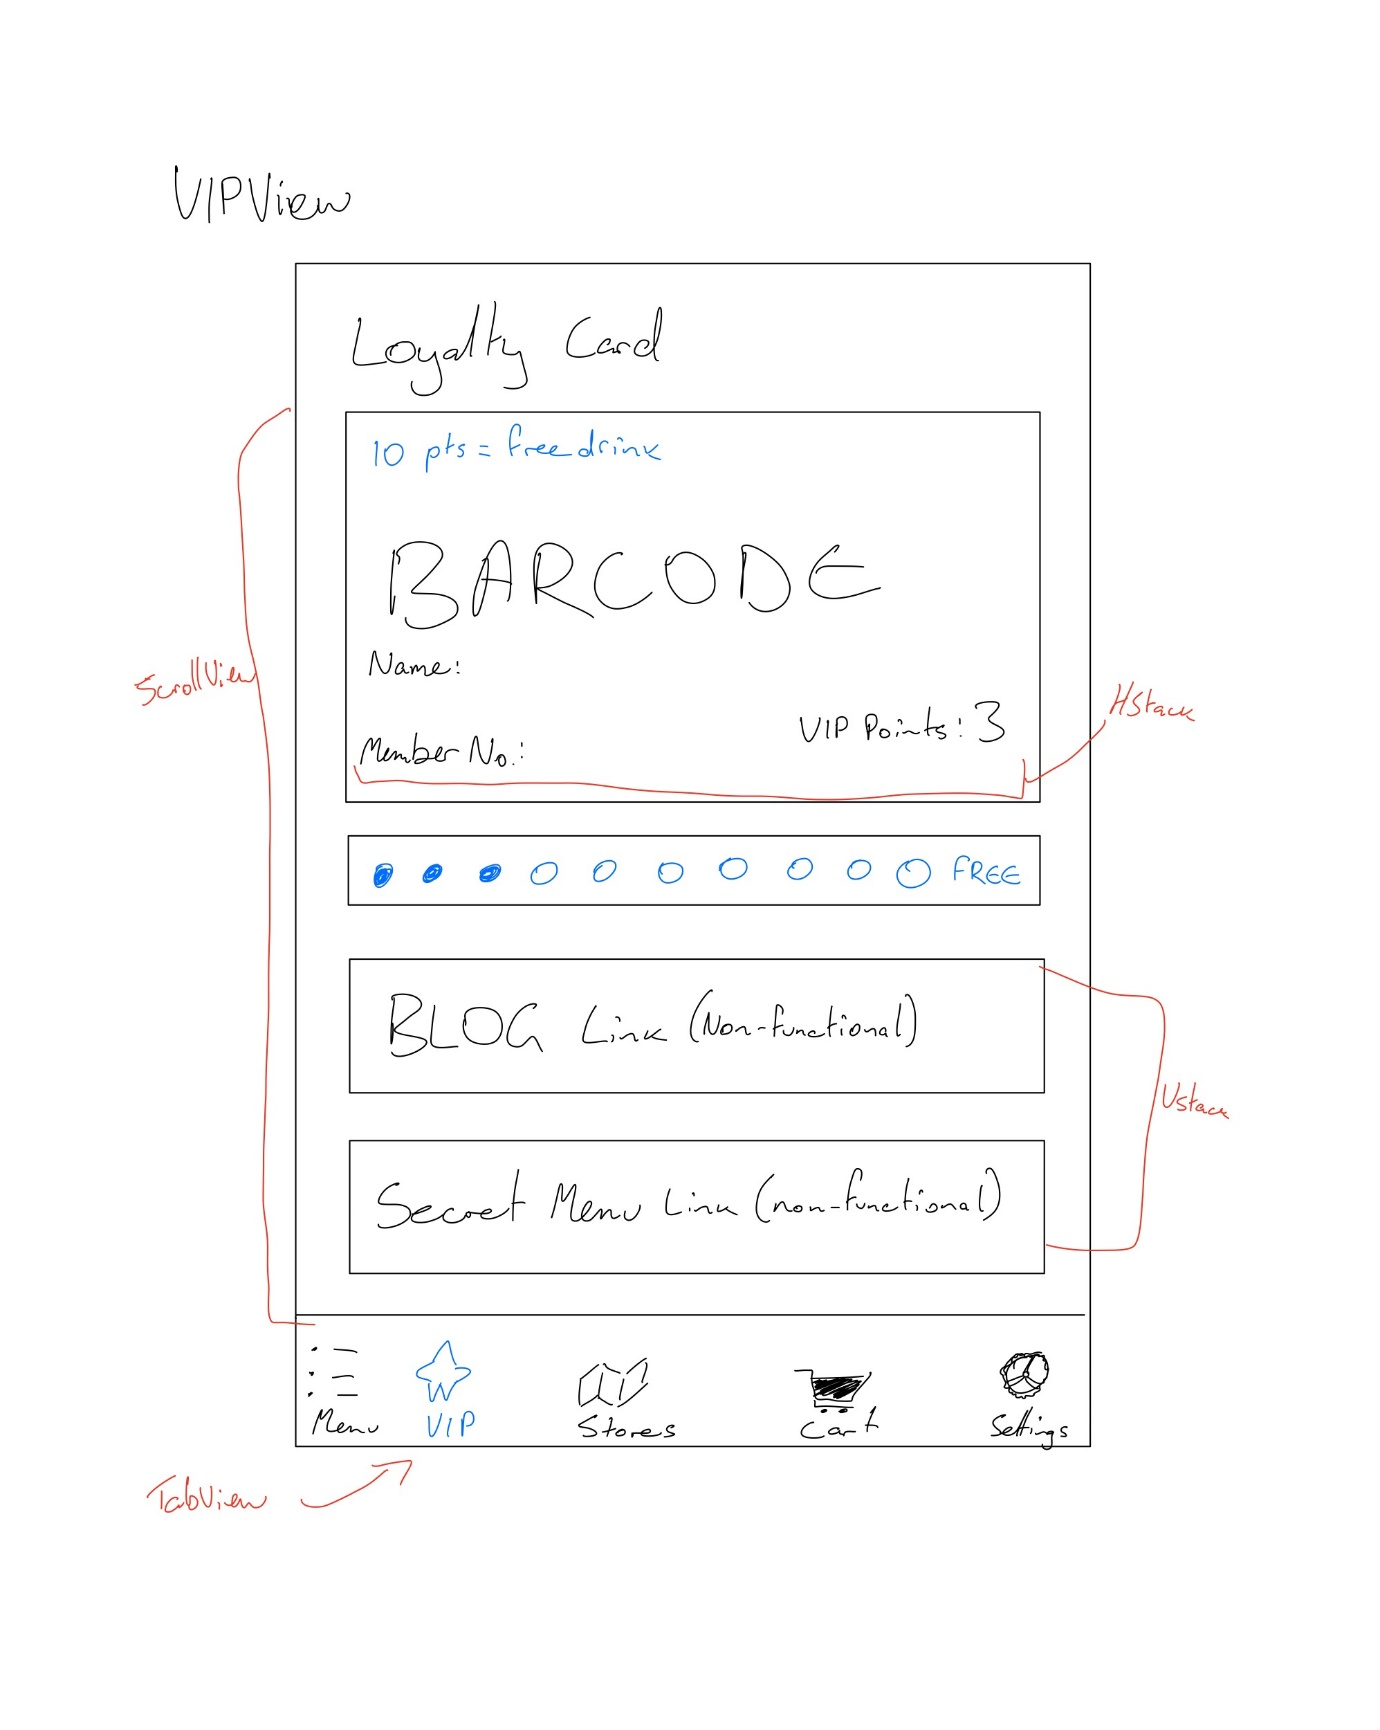 VIPView
Loyalty Card
10 pts = free drink
BARCODE
Name:
ScrollView
HStack
VIP Points: 3
Member No.:
FREE
BLOG Link (Non-functional)
Vstack
Secret Menu Link (non-functional)
Menu
VIP
Stores
Cart
Settings
TabView